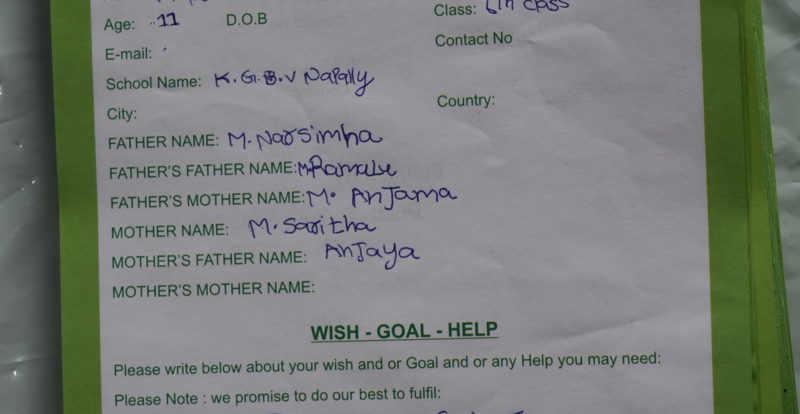 Age: 11 D.O.B Class: 6th class
E-mail: Contact No
School Name: K.G.B.V Napally
City: Country:
FATHER NAME: M. Narsimha
FATHER'S FATHER NAME: M Ramalu
FATHER'S MOTHER NAME: M. Anjama
MOTHER NAME: M. Saritha
MOTHER'S FATHER NAME: Anjaya
MOTHER'S MOTHER NAME:
WISH - GOAL - HELP
Please write below about your wish and or Goal and or any Help you may need:
Please Note : we promise to do our best to fulfil: